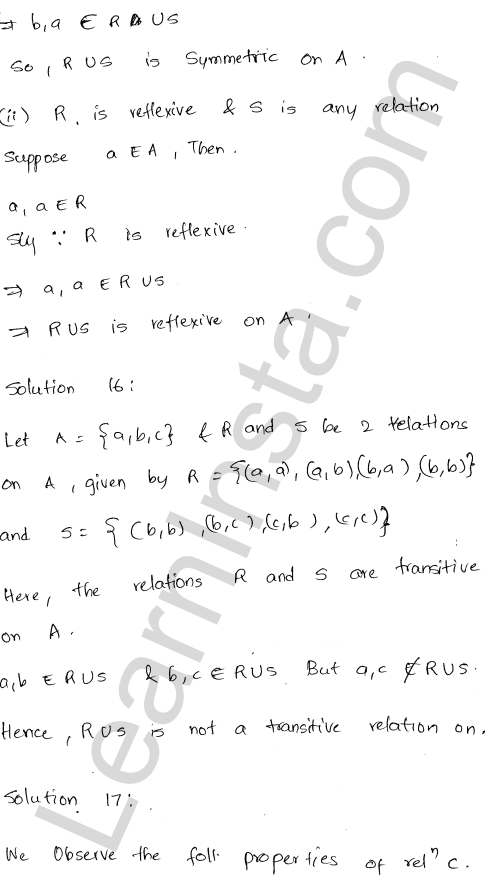 ⇒ b,a ∈ R ∪ S
So, R ∪ S is Symmetric on A.
(ii) R, is reflexive & S is any relation
Suppose a ∈ A, Then.
a, a ∈ R
Sly ∵ R is reflexive.
⇒ a, a ∈ R ∪ S
⇒ R ∪ S is reflexive on A.
Solution 16:
Let A = {a,b,c} & R and S be 2 relations
on A, given by R = {(a,a), (a,b), (b,a), (b,b)}
and S = { (b,b), (b,c), (c,b), (c,c)}
Here, the relations R and S are transitive
on A.
a,b ∈ R ∪ S & b,c ∈ R ∪ S But a,c ∉ R ∪ S.
Hence, R ∪ S is not a transitive relation on.
Solution 17:
We Observe the foll. properties of relⁿ c.
LearnInsta.com